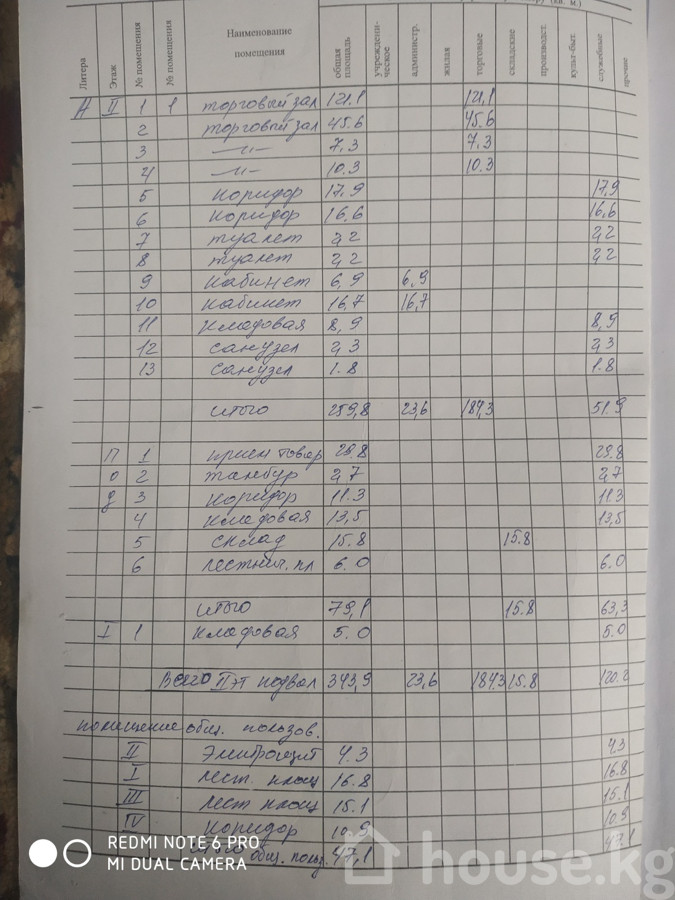 (кв. м.)
Литера Этаж № помещения № помещения Наименование помещения общая площадь учрежденическое администр. жилая торговые складские производст. культ-быт. служебные прочие
А II 1 1 торговый зал 121.1 121,1
2 торговый зал 45.6 45.6
3 —〃— 7,3 7.3
4 —〃— 10.3 10.3
5 коридор 17,9 17,9
6 коридор 16.6 16,6
7 туалет 2,2 2,2
8 туалет 2,2 2,2
9 кабинет 6,9 6,9
10 кабинет 16,7 16,7
11 кладовая 8,9 8,9
12 санузел 2,3 2,3
13 санузел 1.8 1.8
итого 259,8 23,6 184,3 51.9
П 1 прием товар 29.8 29.8
о 2 танбур 2,7 2,7
д 3 коридор 11.3 11.3
4 кладовая 13,5 13,5
5 склад 15.8 15.8
6 лестнич. пл 6.0 6.0
итого 79,1 15.8 63,3
I 1 кладовая 5.0 5.0
Всего II эт подвал 343,9 23,6 184.3 15.8 120.2
помещение общ. пользов.
II Электрощит 4.3 4.3
I лест. площ 16.8 16.8
III лест площ 15.1 15.1
IV коридор 10.9 10.9
итого общ. польз. 47,1 47.1
REDMI NOTE 6 PRO
MI DUAL CAMERA
house.kg